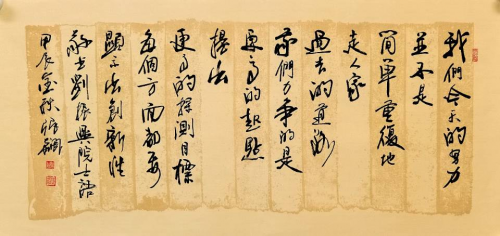 我們今天的努力
並不是
簡單重復地
走人家
過去的道路
我們力爭的是
更高的起點
提出
更高的探測目標
每個方面都要
顯示出創新性
劉振興院士語
甲辰金秋